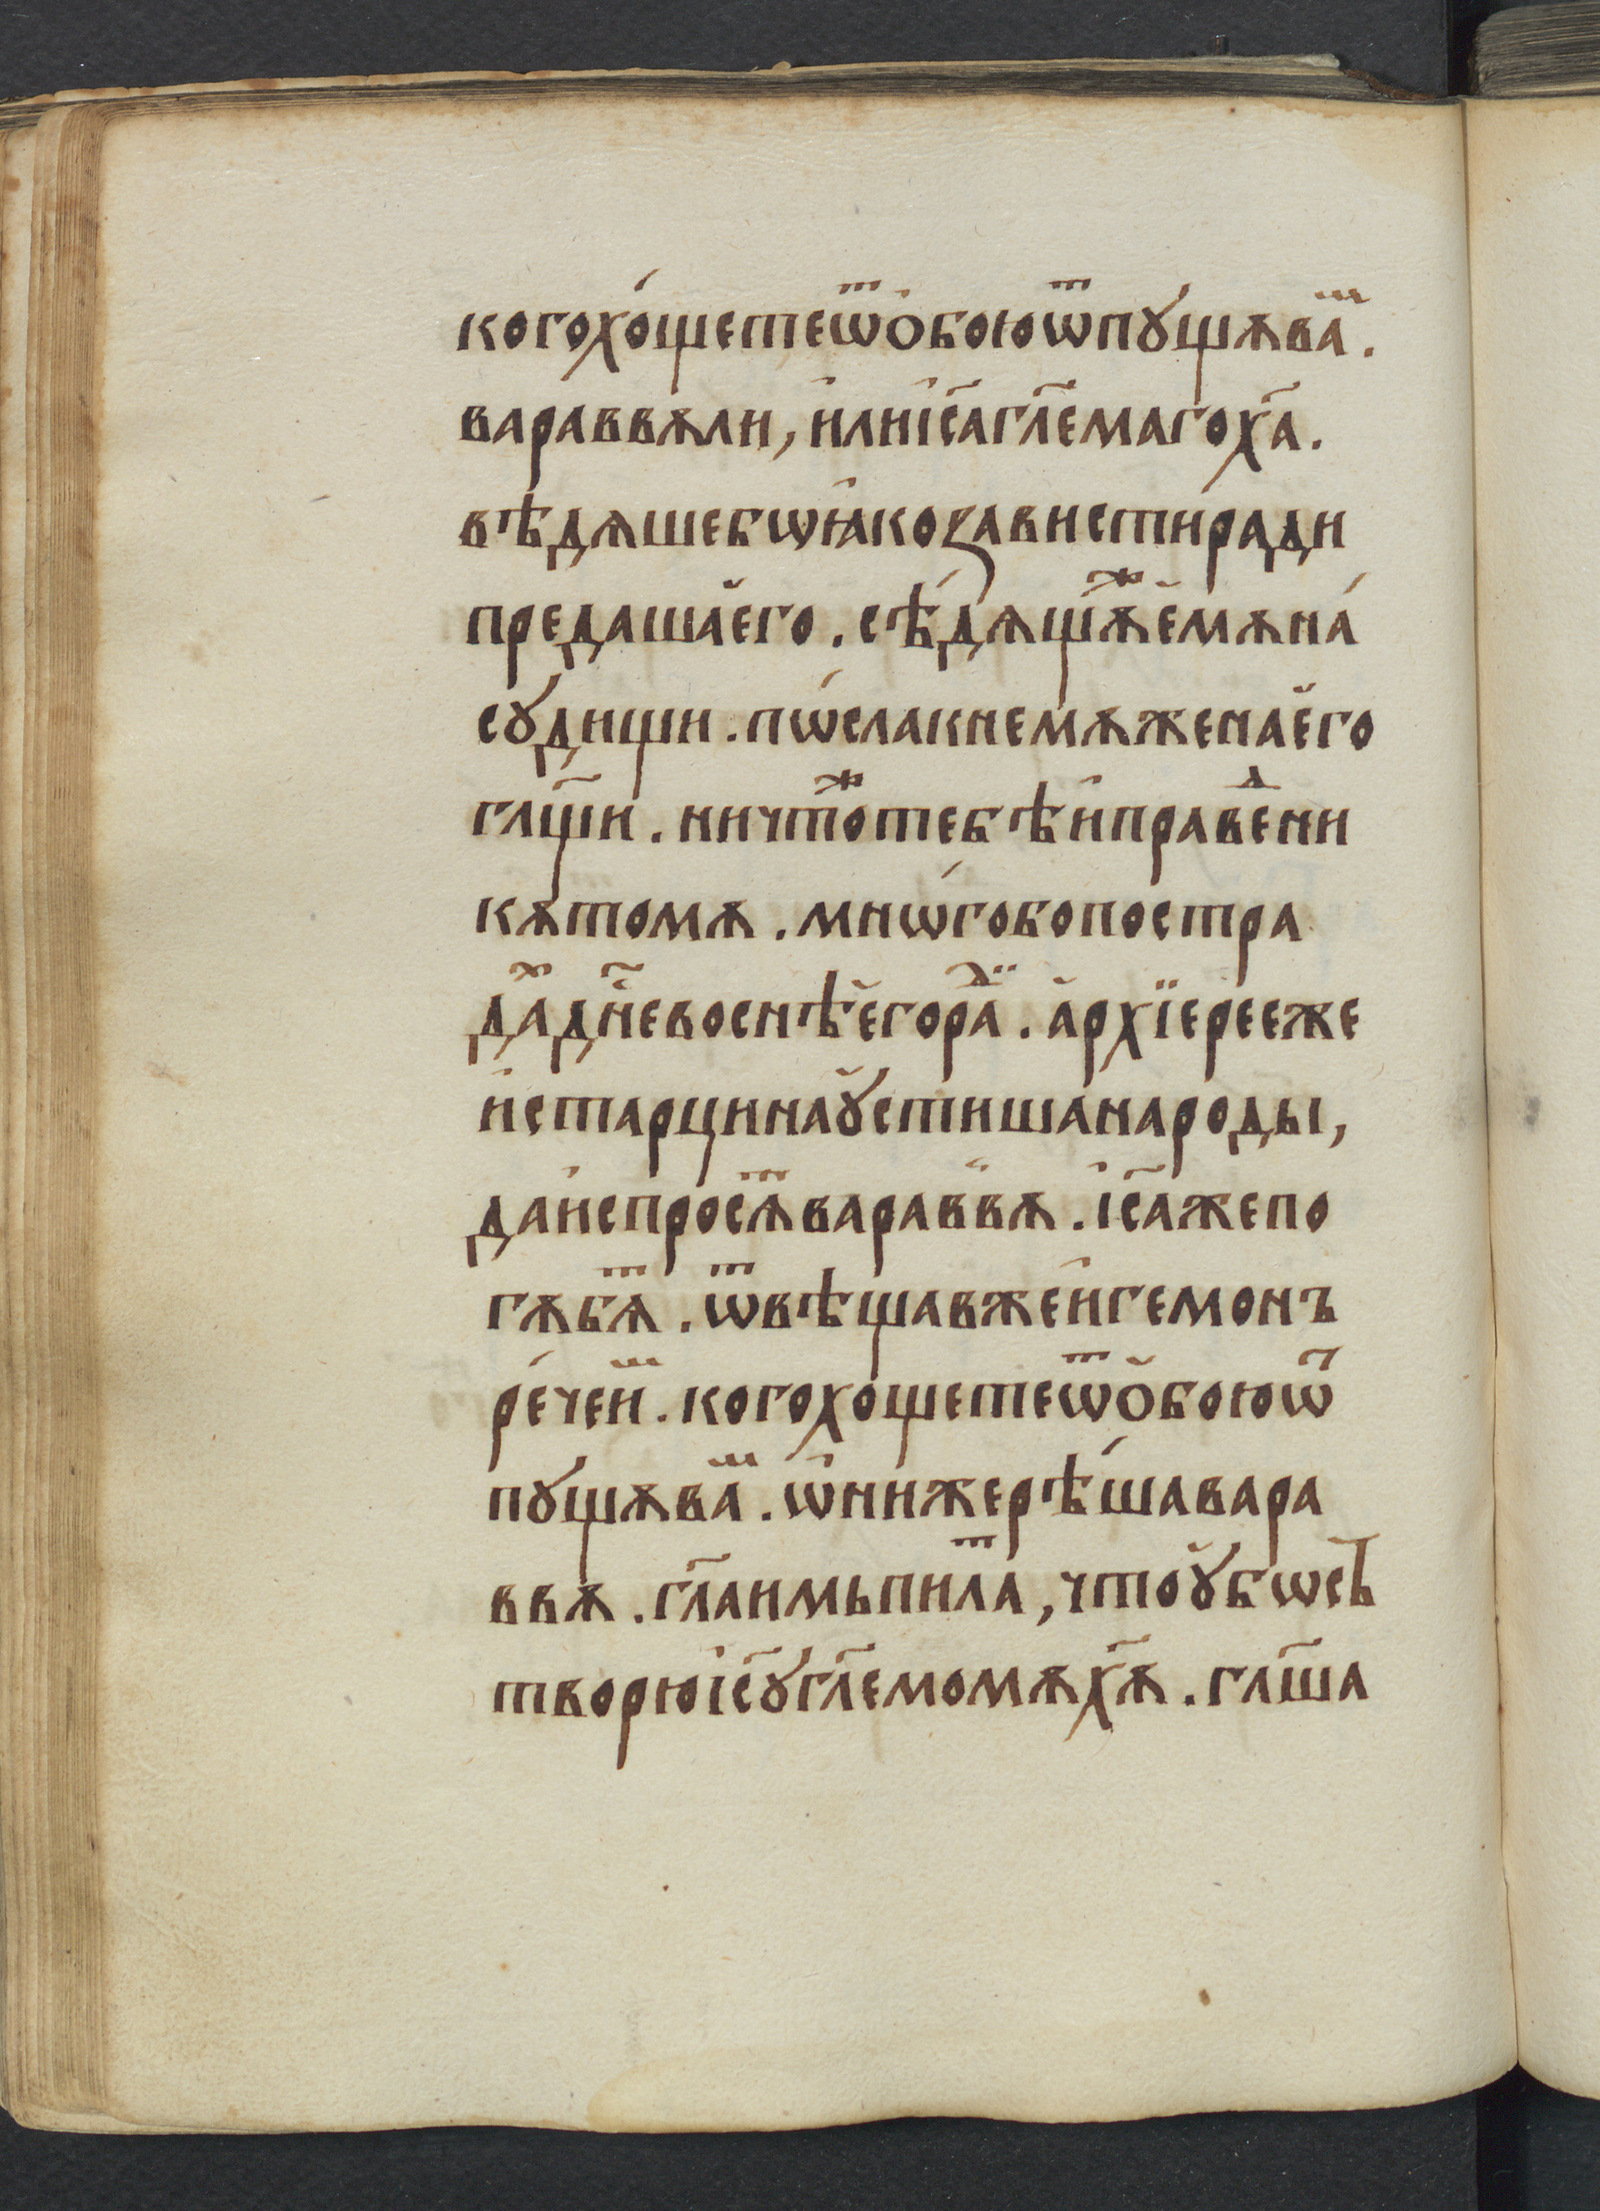 когохо́щетеѿо҆боюѿпꙋщѫваⷨ.
вараввѫли, и҆лиі҆с҃агл҃емагох҃а.
вѣдѧшебѡꙗ҆коꙁавистира́ди
предашае҆го. сѣ́дѧщꙋⷤе҆мѫна́
сꙋ́дищи. пѡ́слакнемѫженае҆го
гл҃щи. ничтоⷤтебѣи҆правеⷣни
кѫтомѫ. мнѡ́гобопостра
даⷯдн҃евоснѣе҆гораⷣи. а҆рхїерееже
и҆старцинаꙋ҆стишанароды,
даи҆спросѧⷮвараввѫ. і҆с҃ажепо
гѫбѧⷮ. ѿвѣщавжеи҆гемонъ
ре́чеиⷨ. когохощетеѿо҆боюѿ
пꙋщѫваⷨ. ѡ҆нижерѣ́шавара
ввѫ. гл҃аимьпилаⷮ, чтоꙋ҆бѡсъ
творюі҆с҃ꙋгл҃емомѫх҃ѫ. гл҃ша